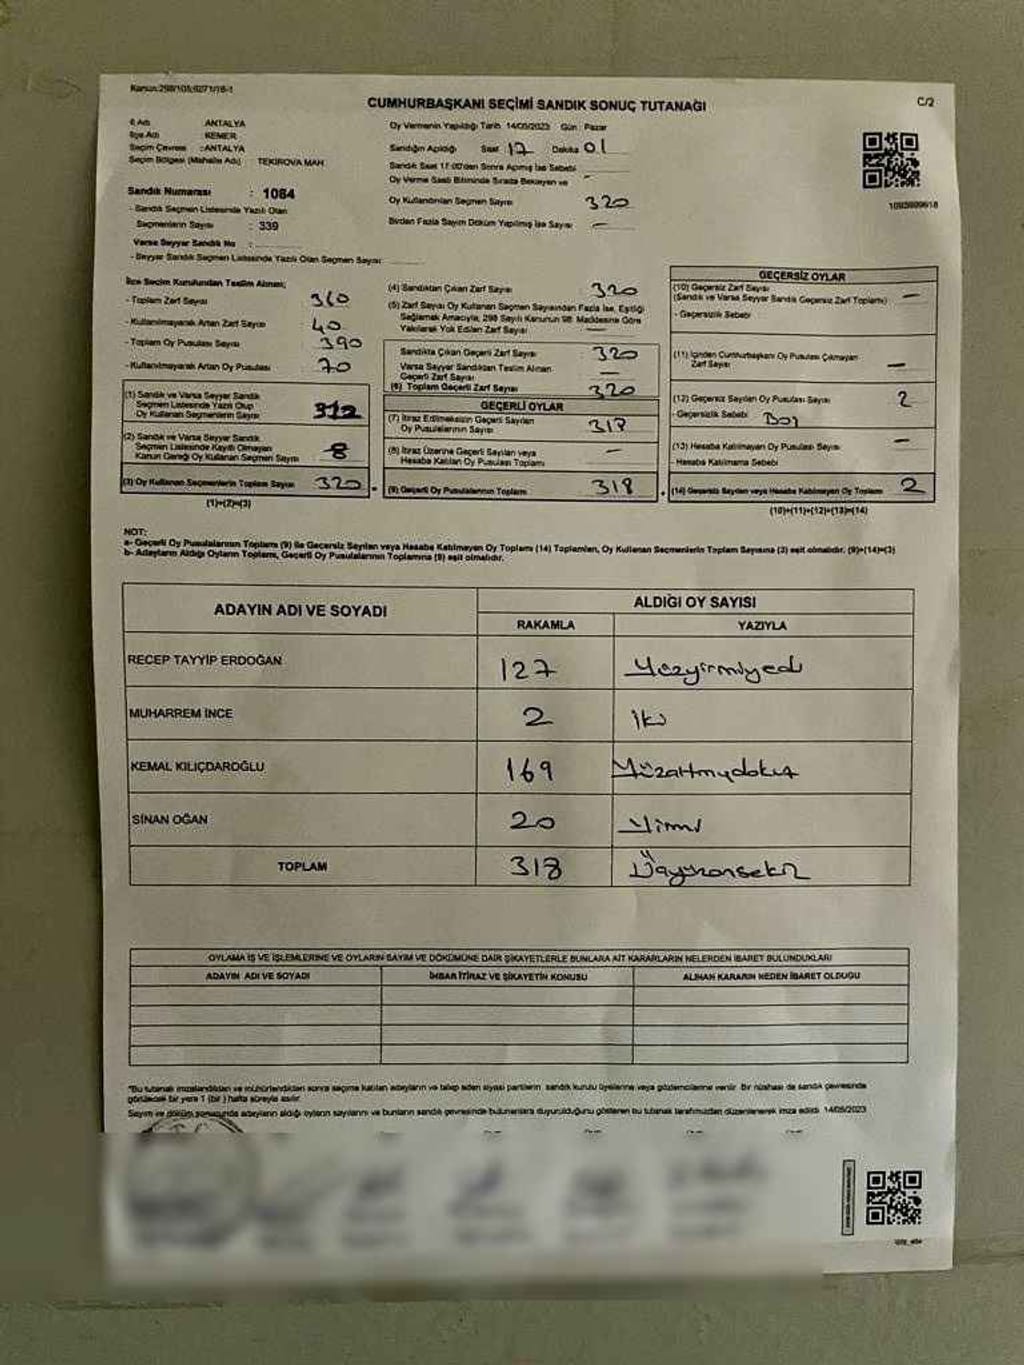 Kanun:298/105;6271/16-1
CUMHURBAŞKANI SEÇİMİ SANDIK SONUÇ TUTANAĞI
C/2
İl Adı ANTALYA
İlçe Adı KEMER
Seçim Çevresi :ANTALYA
Seçim Bölgesi (Mahalle Adı) TEKİROVA MAH
Sandık Numarası : 1084
- Sandık Seçmen Listesinde Yazılı Olan
Seçmenlerin Sayısı : 339
Varsa Seyyar Sandık No :
- Seyyar Sandık Seçmen Listesinde Yazılı Olan Seçmen Sayısı
Oy Vermenin Yapıldığı Tarih 14/05/2023 Gün : Pazar
Sandığın Açıldığı Saat 17 Dakika 01
Sandık Saat 17:00'den Sonra Açılmış İse Sebebi
Oy Verme Saati Bitiminde Sırada Bekleyen ve –
Oy Kullandırılan Seçmen Sayısı 320
Birden Fazla Sayım Döküm Yapılmış İse Sayısı –
İlçe Seçim Kurulundan Teslim Alınan;
- Toplam Zarf Sayısı 360
- Kullanılmayarak Artan Zarf Sayısı 40
- Toplam Oy Pusulası Sayısı 390
- Kullanılmayarak Artan Oy Pusulası 70
(1) Sandık ve Varsa Seyyar Sandık
Seçmen Listesinde Yazılı Olup
Oy Kullanan Seçmenlerin Sayısı 312
(2) Sandık ve Varsa Seyyar Sandık
Seçmen Listesinde Kayıtlı Olmayan
Kanun Gereği Oy Kullanan Seçmen Sayısı 8
(3) Oy Kullanan Seçmenlerin Toplam Sayısı 320
(1)+(2)=(3)
(4) Sandıktan Çıkan Zarf Sayısı 320
(5) Zarf Sayısı Oy Kullanan Seçmen Sayısından Fazla İse, Eşitliği
Sağlamak Amacıyla, 298 Sayılı Kanunun 98. Maddesine Göre
Yakılarak Yok Edilen Zarf Sayısı –
Sandıkta Çıkan Geçerli Zarf Sayısı 320
Varsa Seyyar Sandıktan Teslim Alınan
Geçerli Zarf Sayısı –
(6) Toplam Geçerli Zarf Sayısı 320
GEÇERLİ OYLAR
(7) İtiraz Edilmeksizin Geçerli Sayılan
Oy Pusulalarının Sayısı 318
(8) İtiraz Üzerine Geçerli Sayılan veya
Hesaba Katılan Oy Pusulası Toplamı –
(9) Geçerli Oy Pusulalarının Toplamı 318
GEÇERSİZ OYLAR
(10) Geçersiz Zarf Sayısı –
(Sandık ve Varsa Seyyar Sandık Geçersiz Zarf Toplamı)
- Geçersizlik Sebebi
(11) İçinden Cumhurbaşkanı Oy Pusulası Çıkmayan
Zarf Sayısı –
(12) Geçersiz Sayılan Oy Pusulası Sayısı 2
- Geçersizlik Sebebi Boş
(13) Hesaba Katılmayan Oy Pusulası Sayısı –
- Hesaba Katılmama Sebebi
(14) Geçersiz Sayılan veya Hesaba Katılmayan Oy Toplamı 2
(10)+(11)+(12)+(13)=(14)
NOT:
a- Geçerli Oy Pusulalarının Toplamı (9) ile Geçersiz Sayılan veya Hesaba Katılmayan Oy Toplamı (14) Toplamları, Oy Kullanan Seçmenlerin Toplam Sayısına (3) eşit olmalıdır. (9)+(14)=(3)
b- Adayların Aldığı Oyların Toplamı, Geçerli Oy Pusulalarının Toplamına (9) eşit olmalıdır.
ADAYIN ADI VE SOYADI ALDIĞI OY SAYISI
RAKAMLA YAZIYLA
RECEP TAYYİP ERDOĞAN 127 Yüzyirmiyedi
MUHARREM İNCE 2 iki
KEMAL KILIÇDAROĞLU 169 Yüzaltmışdokuz
SİNAN OĞAN 20 Yirmi
TOPLAM 318 Üçyüzonsekiz
OYLAMA İŞ VE İŞLEMLERİNE VE OYLARIN SAYIM VE DÖKÜMÜNE DAİR ŞİKAYETLERLE BUNLARA AİT KARARLARIN NELERDEN İBARET BULUNDUKLARI
ADAYIN ADI VE SOYADI İHBAR İTİRAZ VE ŞİKAYETİN KONUSU ALINAN KARARIN NEDEN İBARET OLDUĞU
"Bu tutanak imzalandıktan ve mühürlendikten sonra seçime katılan adayların ve talep eden siyasi partilerin, sandık kurulu üyelerine veya gözlemcilerine verilir. Bir nüshası da sandık çevresinde
görülecek bir yere 1 (bir) hafta süreyle asılır.
Sayım ve döküm sonucunda adayların aldığı oyların sayılarını ve bunların sandık çevresinde bulunanlara duyurulduğunu gösteren bu tutanak tarafımızdan düzenlenerek imza edildi. 14/05/2023